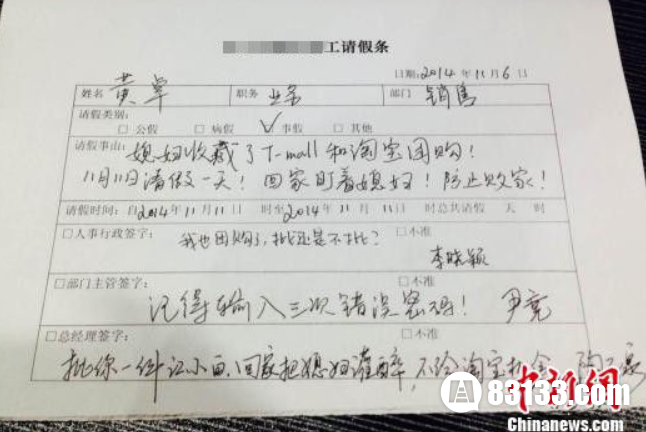 工请假条
日期:2014年11月6日
姓名 黄卓 职务 业务 部门 销售
请假类别:
□公假 □病假 ✓事假 □其他
请假事由: 媳妇收藏了T-mall和淘宝团购!
11月11日请假一天! 回家盯着媳妇! 防止败家!
请假时间:自2014年11月11日 时至2014年11月11日 时总共请假 天 时
□人事行政签字: □不准
我也团购了,批还是不批?
李晓颖
□部门主管签字: □不准
记得输入三次错误密码! 尹亮
□总经理签字: □不准
批你一件江小白,回家把媳妇灌醉,不给淘宝扛金
中新网
83133.com
Chinanews.com